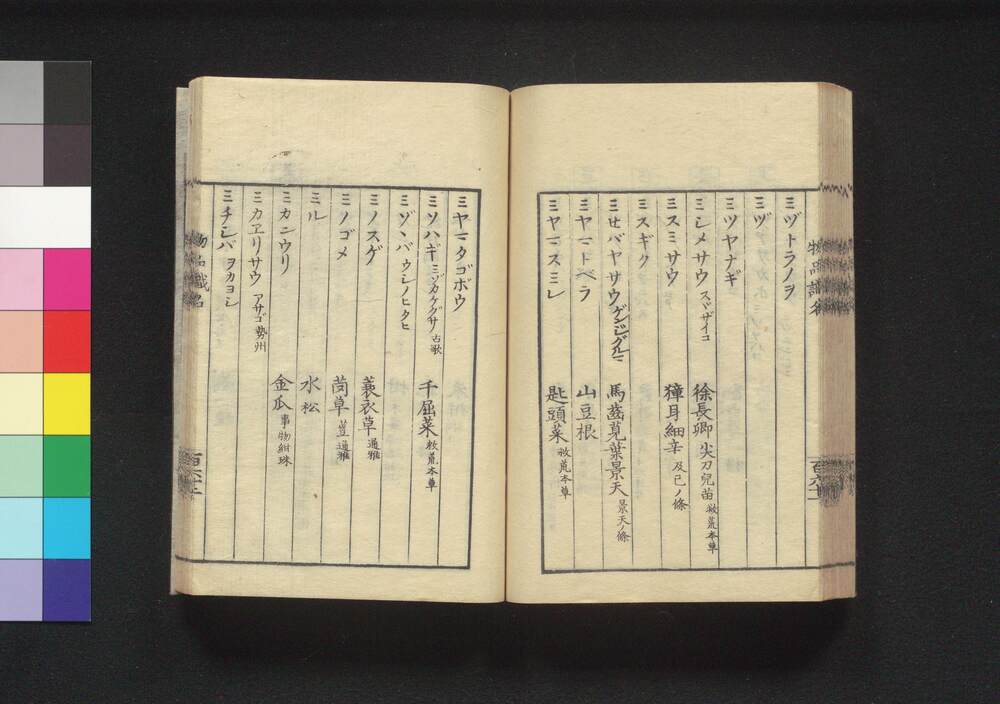 ミヅトラノヲ
ミヅ
ミツヤナギ
ミシメサウ スヾサイコ 徐長卿 尖刀兒苗 救荒本草
ミスミサウ 獐耳細辛 及己ノ條
ミスギク
ミセバヤサウ 馬齒莧葉景天 景天ノ條
ミヤマトベラ 山豆根
ミヤマスミレ 匙頭菜 救荒本草
ミヤマタゴボウ
ミソハギ ミゾカケグサ 古歌 千屈菜 救荒本草
ミゾンバウシノヒタヒ
ミノスゲ 蓑衣草 通雅
ミノゴメ 茼草 通雅
ミル 水松
ミカンウリ 金瓜 事物紺珠
ミカヱリサウ アサゴ 勢州
ミチシバ ヲカヨシ
物品識名